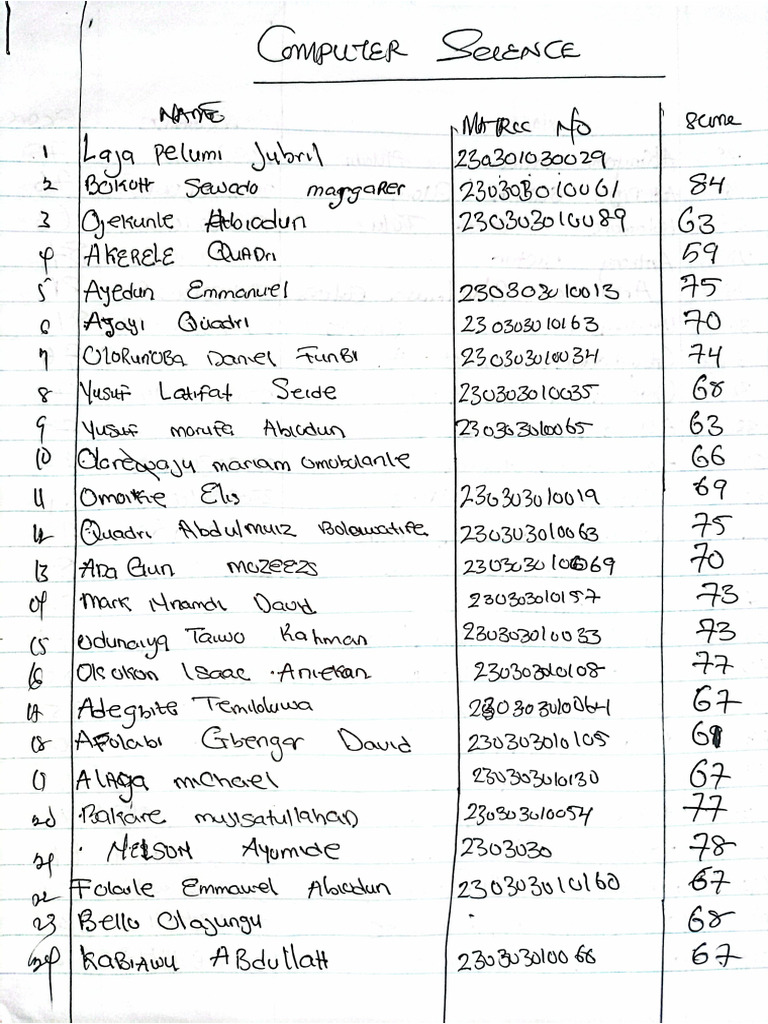 COMPUTER SCIENCE
NAME MATRIC NO SCORE
1 Laja Pelumi Jubril 230301030029
2 Bokoh Sewado maggaRer 230303010061 84
3 Ojekunle Abiodun 230303010089 63
4 AKERELE QUADri 59
5 Ayedun Emmanuel 230303010013 75
6 Ajayi Quadri 230303010163 70
7 OloRUNOBA Daniel FunBi 230303010034 74
8 Yusuf Latifat Seide 230303010035 68
9 Yusuf morufa Abiodun 230303010065 63
10 Olarewaju mariam omobolanle 66
11 Omoikie Elis 230303010019 69
12 Quadri Abdulmuiz Bolawatife 230303010063 75
13 mozeezs 230303010069 70
14 Mark Nnamdi David 230303010157 73
15 odunaiya Taiwo Rahman 230303010033 73
16 Okokon Isaac Aniekan 230303010108 77
17 Adegbite Temiloluwa 230303010064 67
18 AFolabi Gbenga David 230303010105
19 Alaga michael 230303010130 67
20 Bakare mujisatullahan 230303010054 77
21 NELSON Ayomide 2303030 78
22 Folarle Emmanuel Abiodun 230303010160 67
23 Bello Olajungu 68
24 KABIAWU ABdullaH 230303010068 67